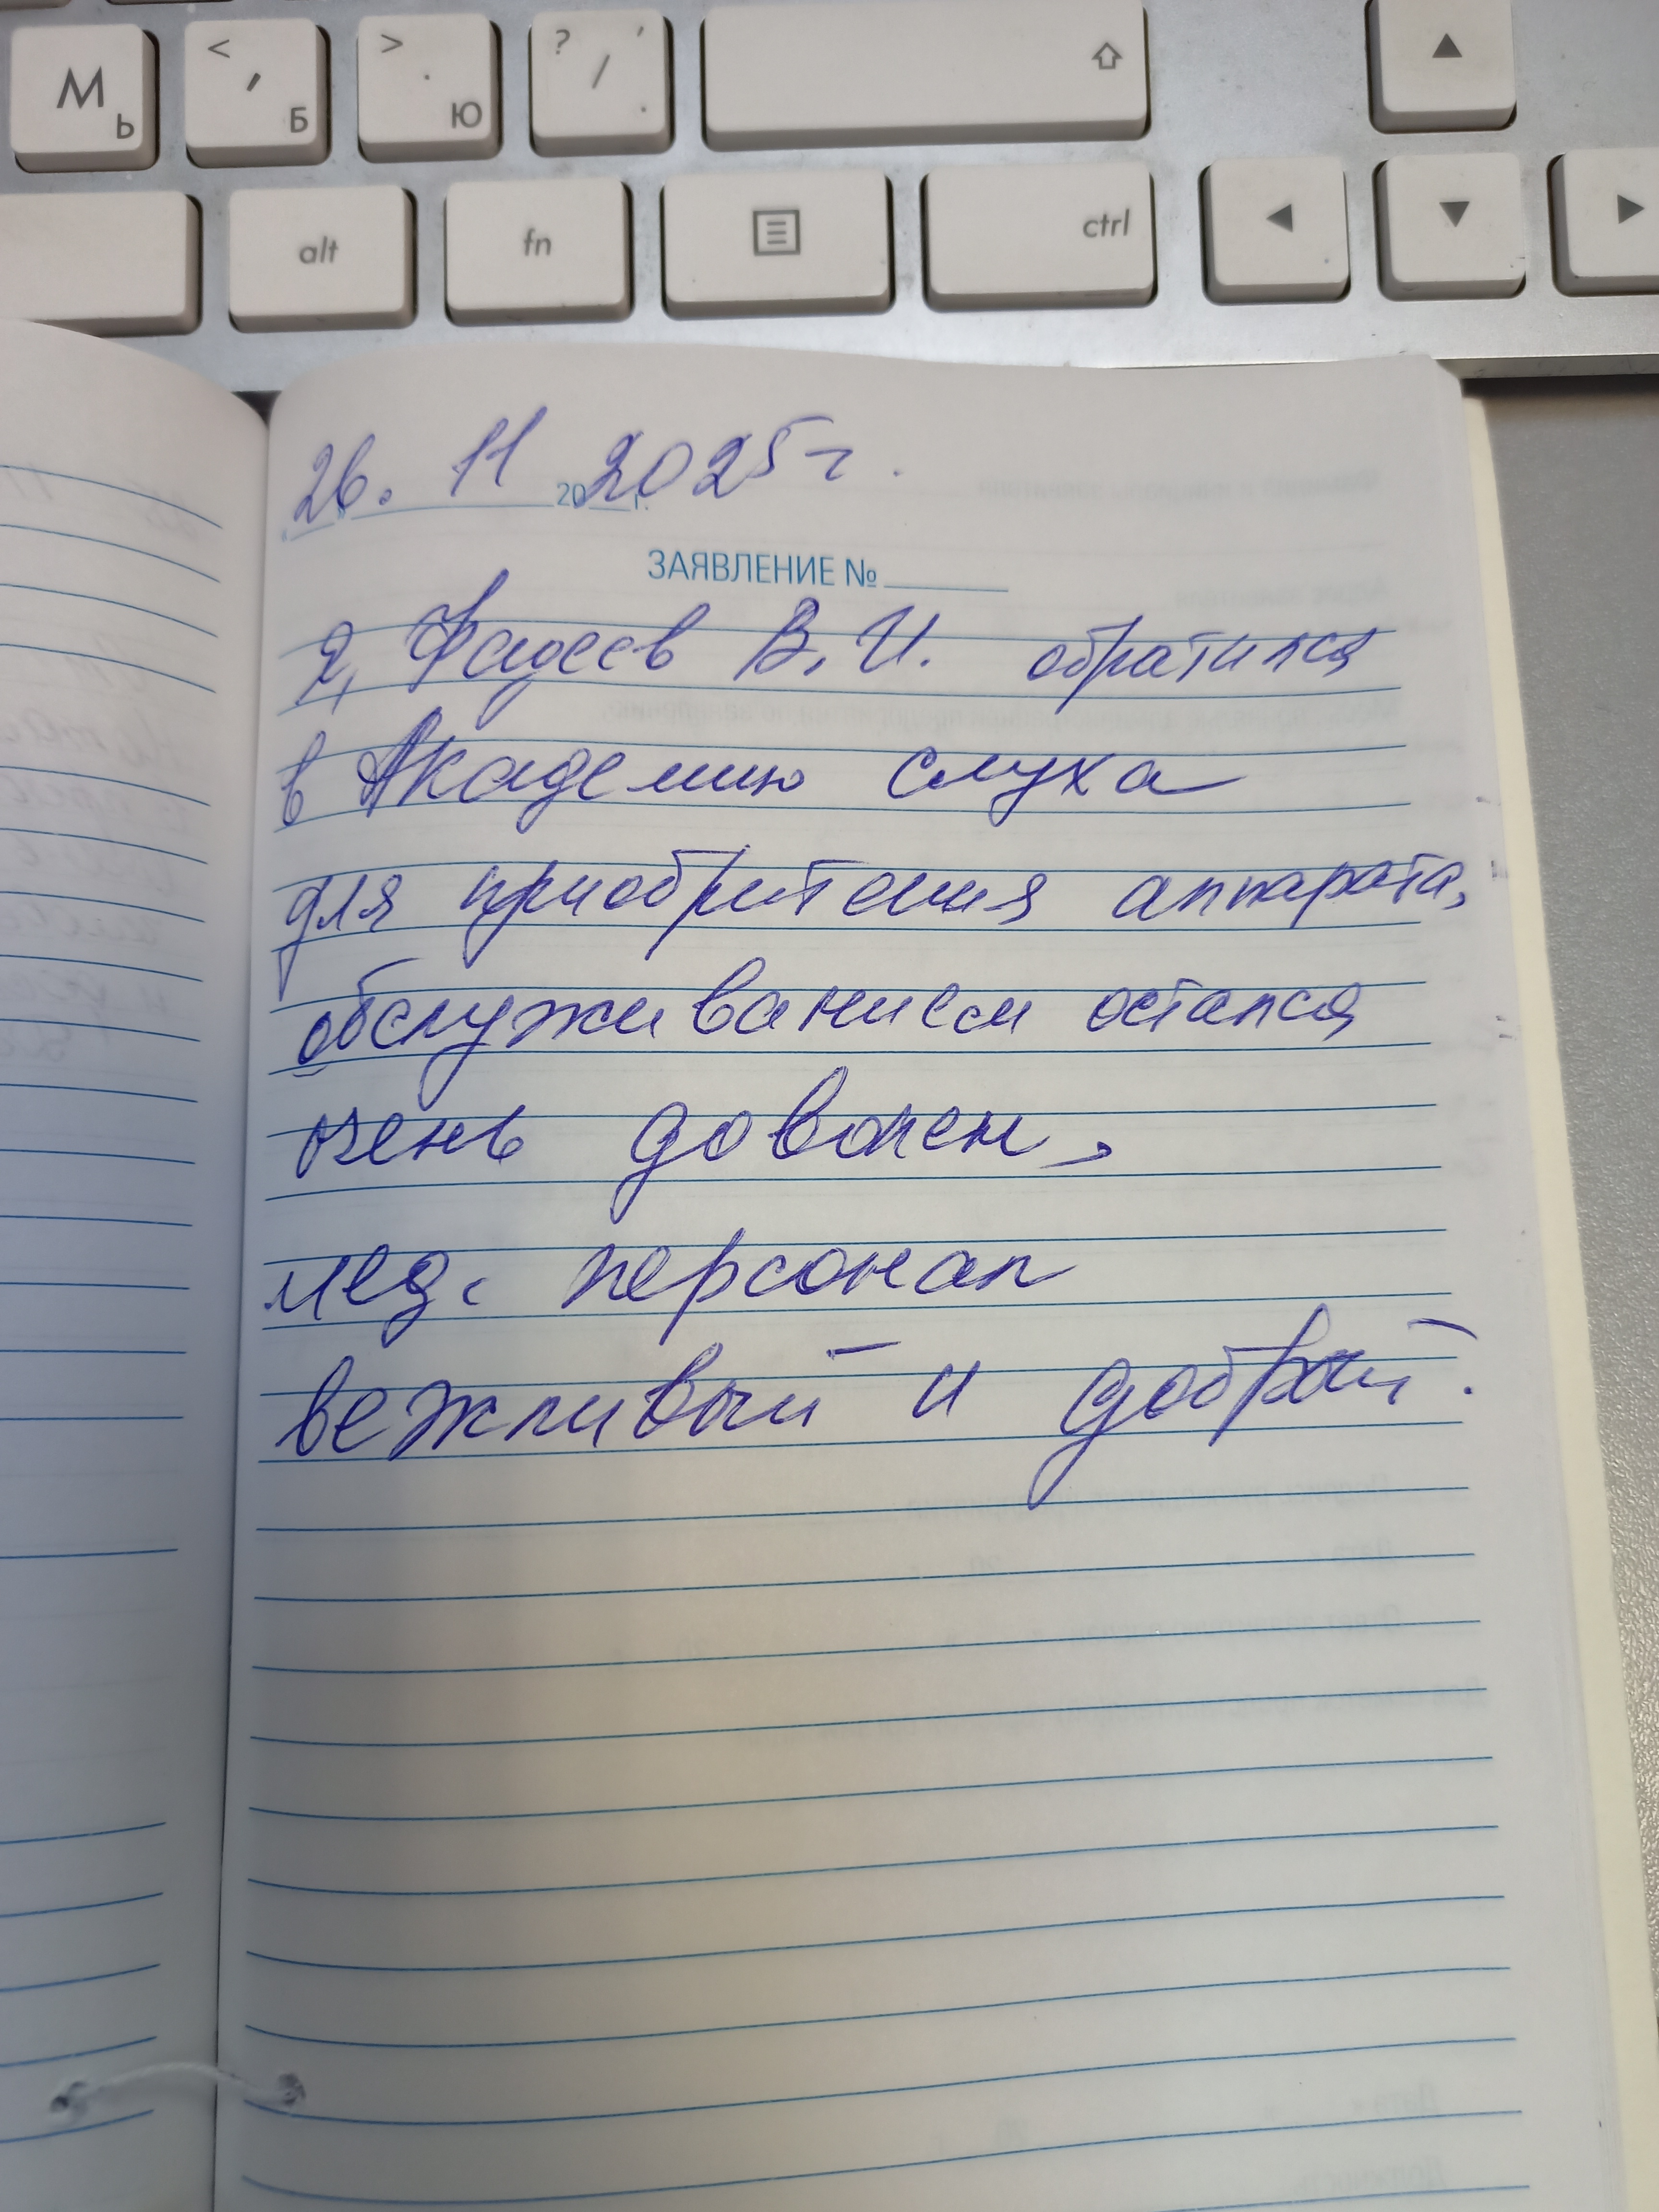 М Ь < , Б > . Ю ? / ' .
alt fn ctrl
26. 11 20 2025 г.
ЗАЯВЛЕНИЕ №
Я, Фадеев В. И. обратился
в Академию слуха
для приобритения аппарата,
обслуживанием остался
очень доволен,
мед. персонал
вежливый и добрый.